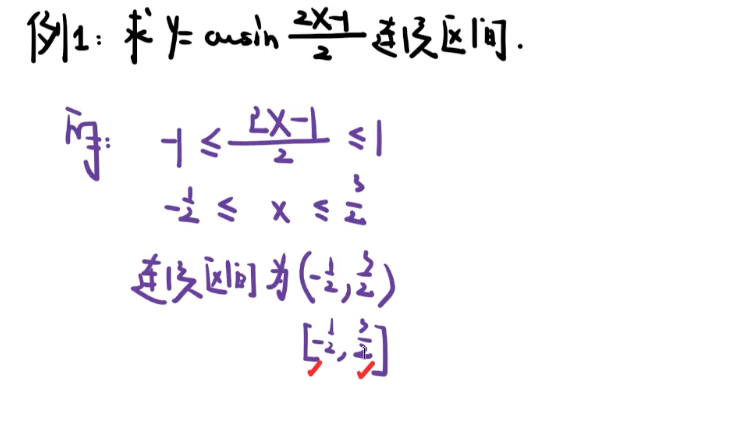 例1: 求 y= arcsin (2x-1)/2 连续区间.
解: -1 ≤ (2x-1)/2 ≤ 1
-1/2 ≤ x ≤ 3/2
连续区间为 (-1/2, 3/2)
[-1/2, 3/2]